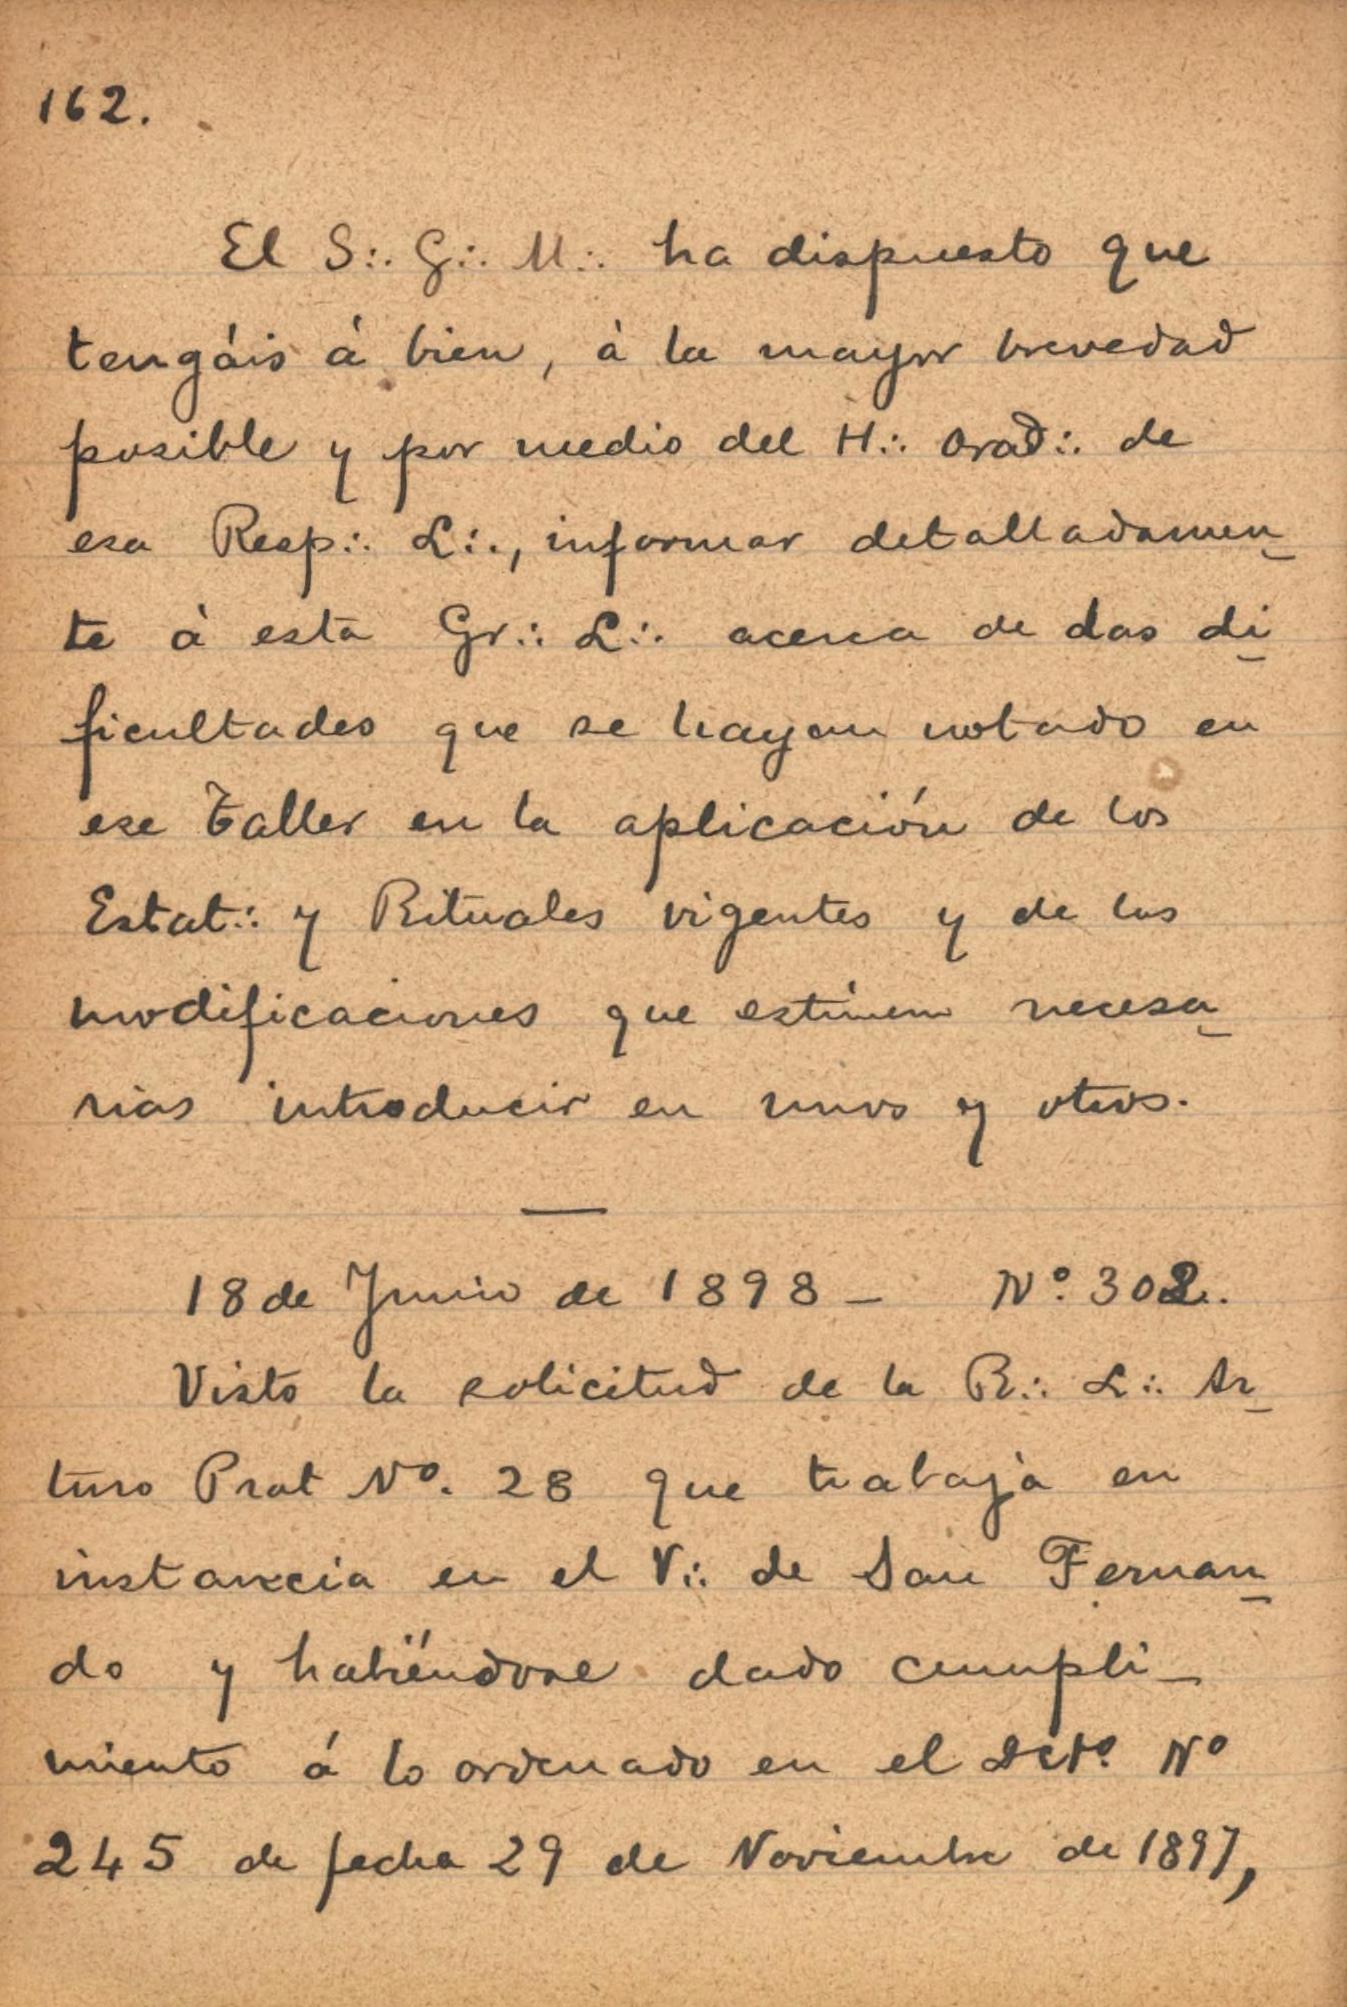 162.
El S∴ G∴ M∴ ha dispuesto que
tengáis á bien, á la mayor brevedad
posible y por medio del H∴ Orad∴ de
esa Resp∴ L∴, informar detalladamen-
te á esta Gr∴ L∴ acerca de las di-
ficultades que se hayan notado en
ese Taller en la aplicación de los
Estat∴ y Rituales vigentes y de las
modificaciones que estimen necesa-
rias introducir en unos y otros.
—
18 de Junio de 1898 — Nº 302.
Visto la solicitud de la R∴ L∴ Ar-
turo Prat Nº. 28 que trabaja en
instancia en el V∴ de San Fernan-
do y habiéndose dado cumpli-
miento á lo ordenado en el Dcto. Nº
245 de fecha 29 de Noviembre de 1897,